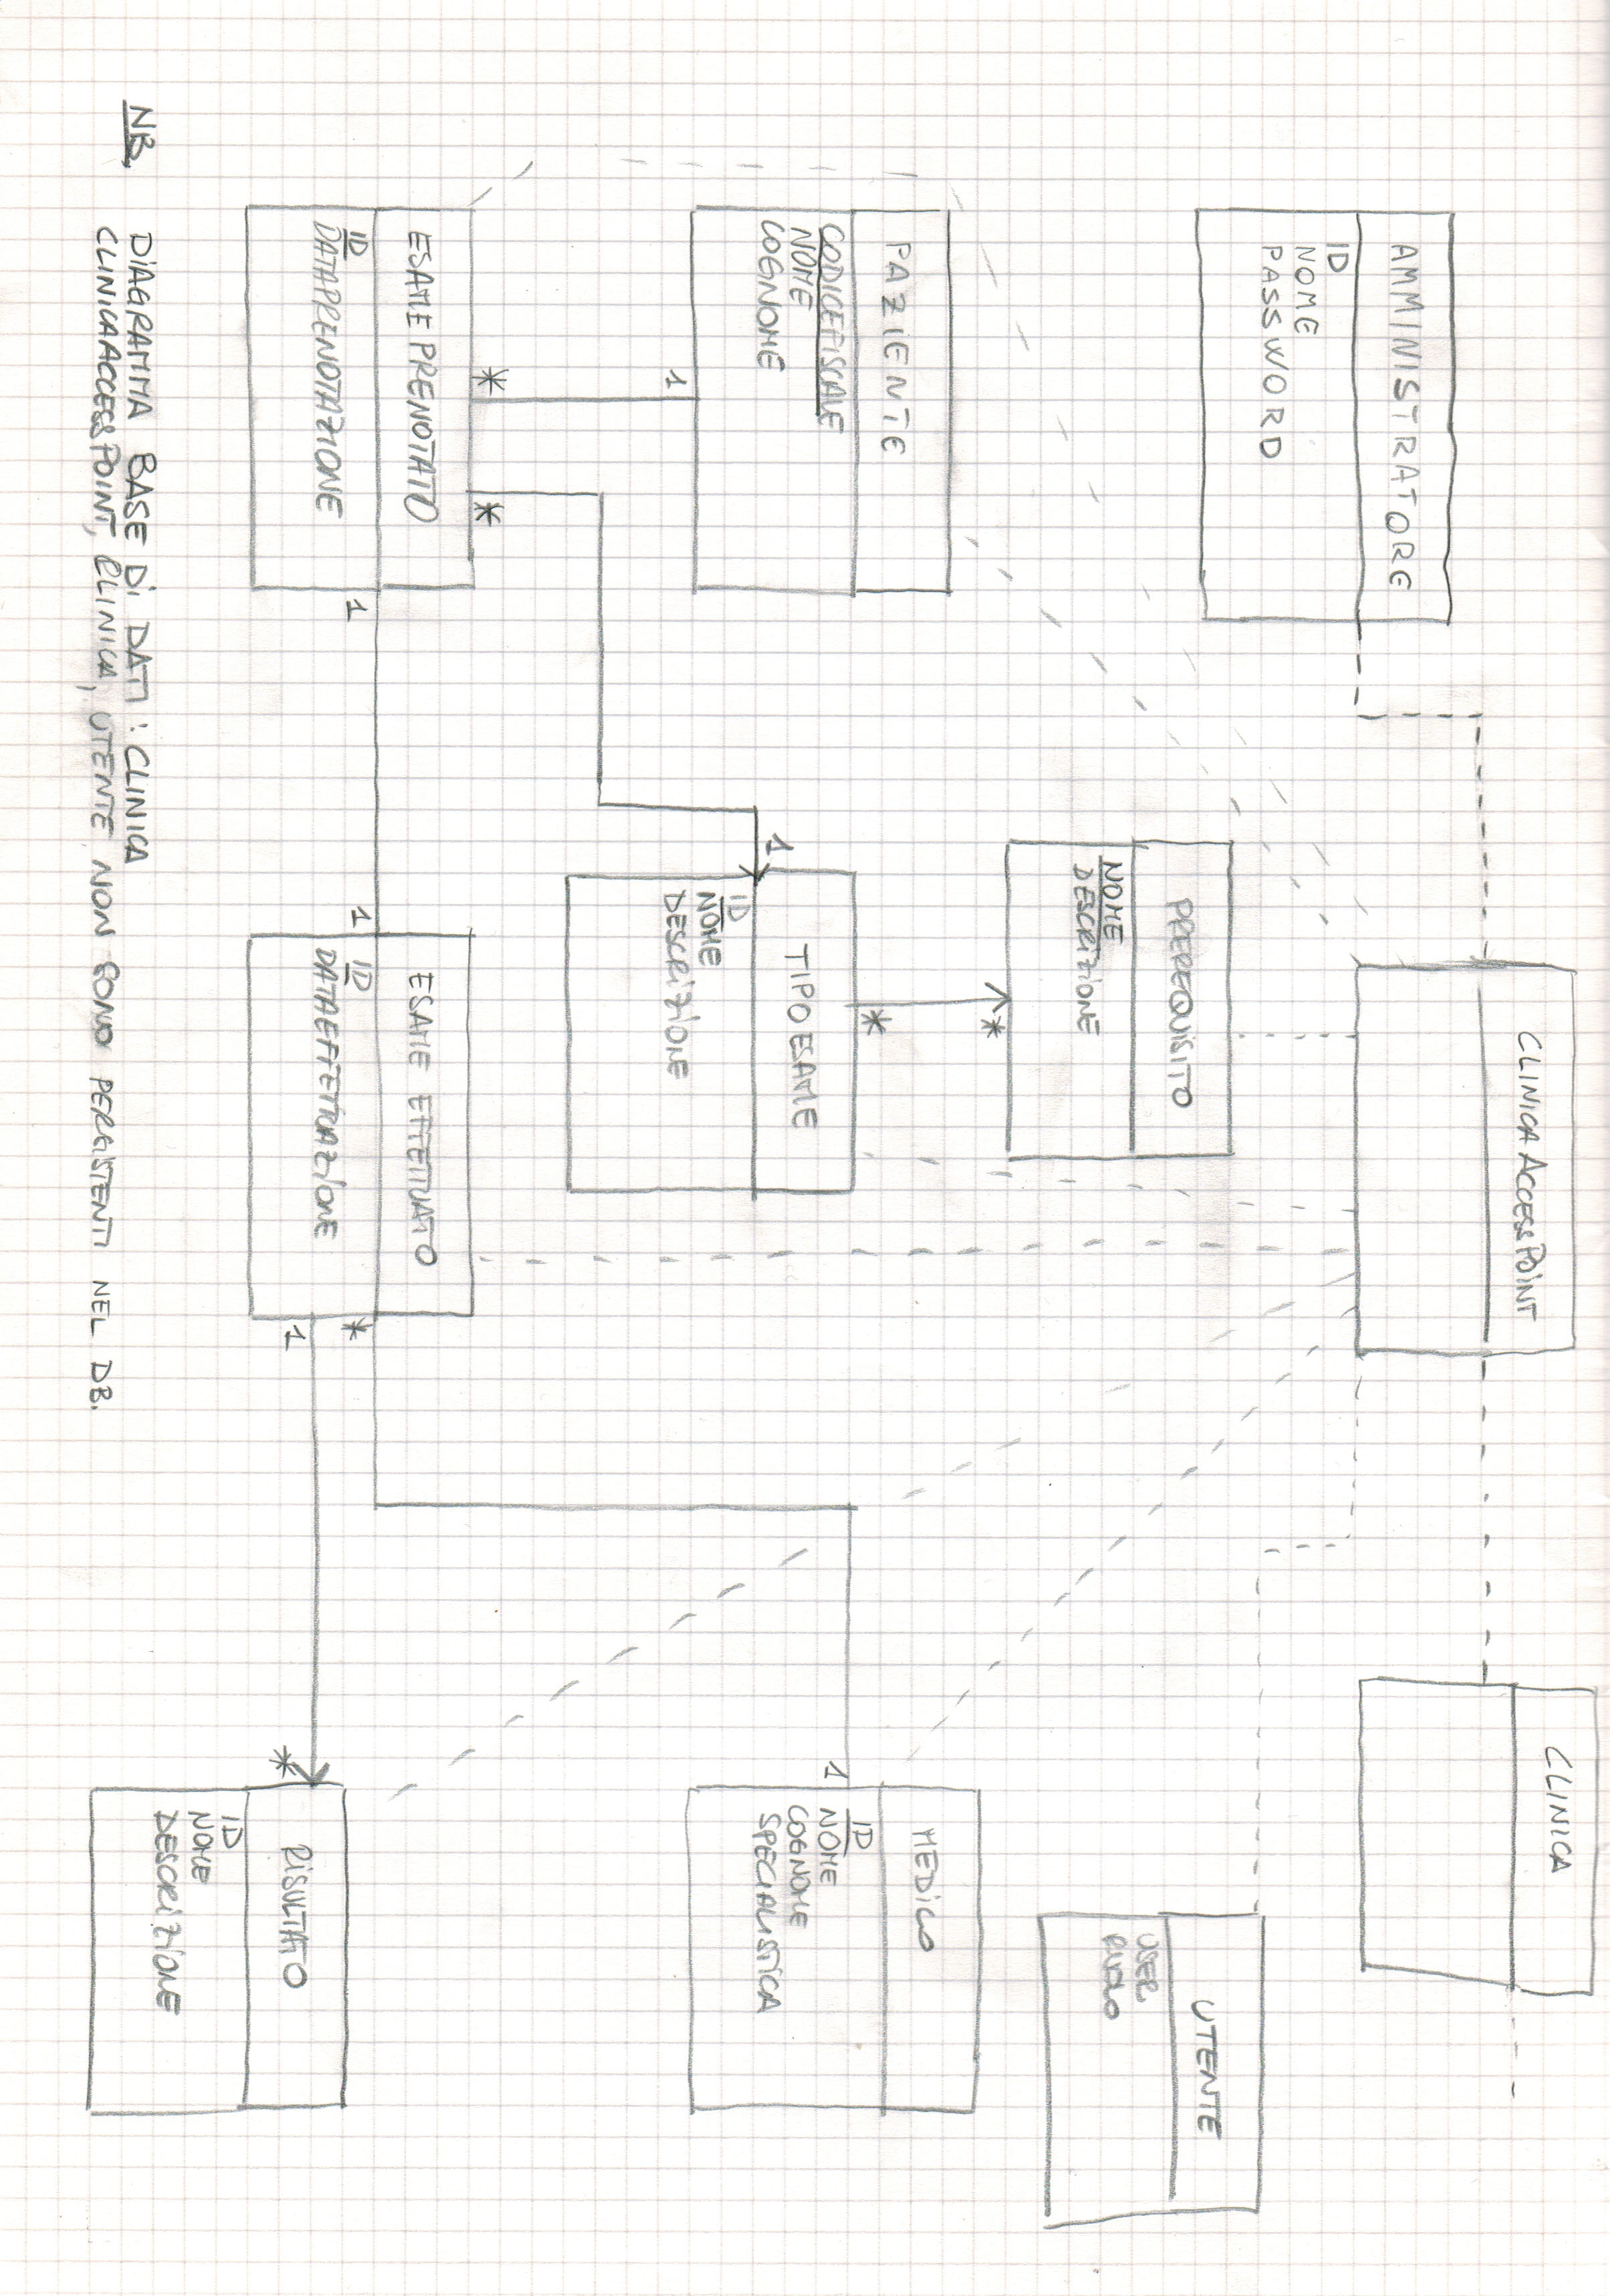 CLINICA ACCESSPOINT
CLINICA
AMMINISTRATORE
ID
NOME
PASSWORD
PREREQUISITO
NOME
DESCRIZIONE
*
*
UTENTE
USER
RUOLO
PAZIENTE
CODICEFISCALE
NOME
COGNOME
1
TIPO ESAME
ID
NOME
DESCRIZIONE
1
MEDICO
ID
NOME
COGNOME
SPECIALISTICA
1
* *
ESAME PRENOTATO
ID
DATAPRENOTAZIONE
1 1
ESAME EFFETTUATO
ID
DATAEFFETTUAZIONE
*
1 *
RISULTATO
ID
NOME
DESCRIZIONE
NB. DIAGRAMMA BASE DI DATI : CLINICA
CLINICAACCESSPOINT, CLINICA, UTENTE NON SONO PERSISTENTI NEL DB.